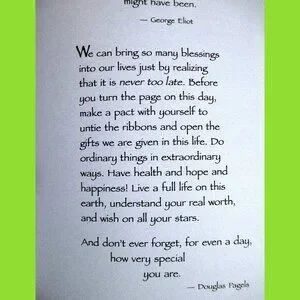 might have been.
— George Eliot
We can bring so many blessings
into our lives just by realizing
that it is never too late. Before
you turn the page on this day,
make a pact with yourself to
untie the ribbons and open the
gifts we are given in this life. Do
ordinary things in extraordinary
ways. Have health and hope and
happiness! Live a full life on this
earth, understand your real worth,
and wish on all your stars.
And don't ever forget, for even a day,
how very special
you are.
— Douglas Pagels